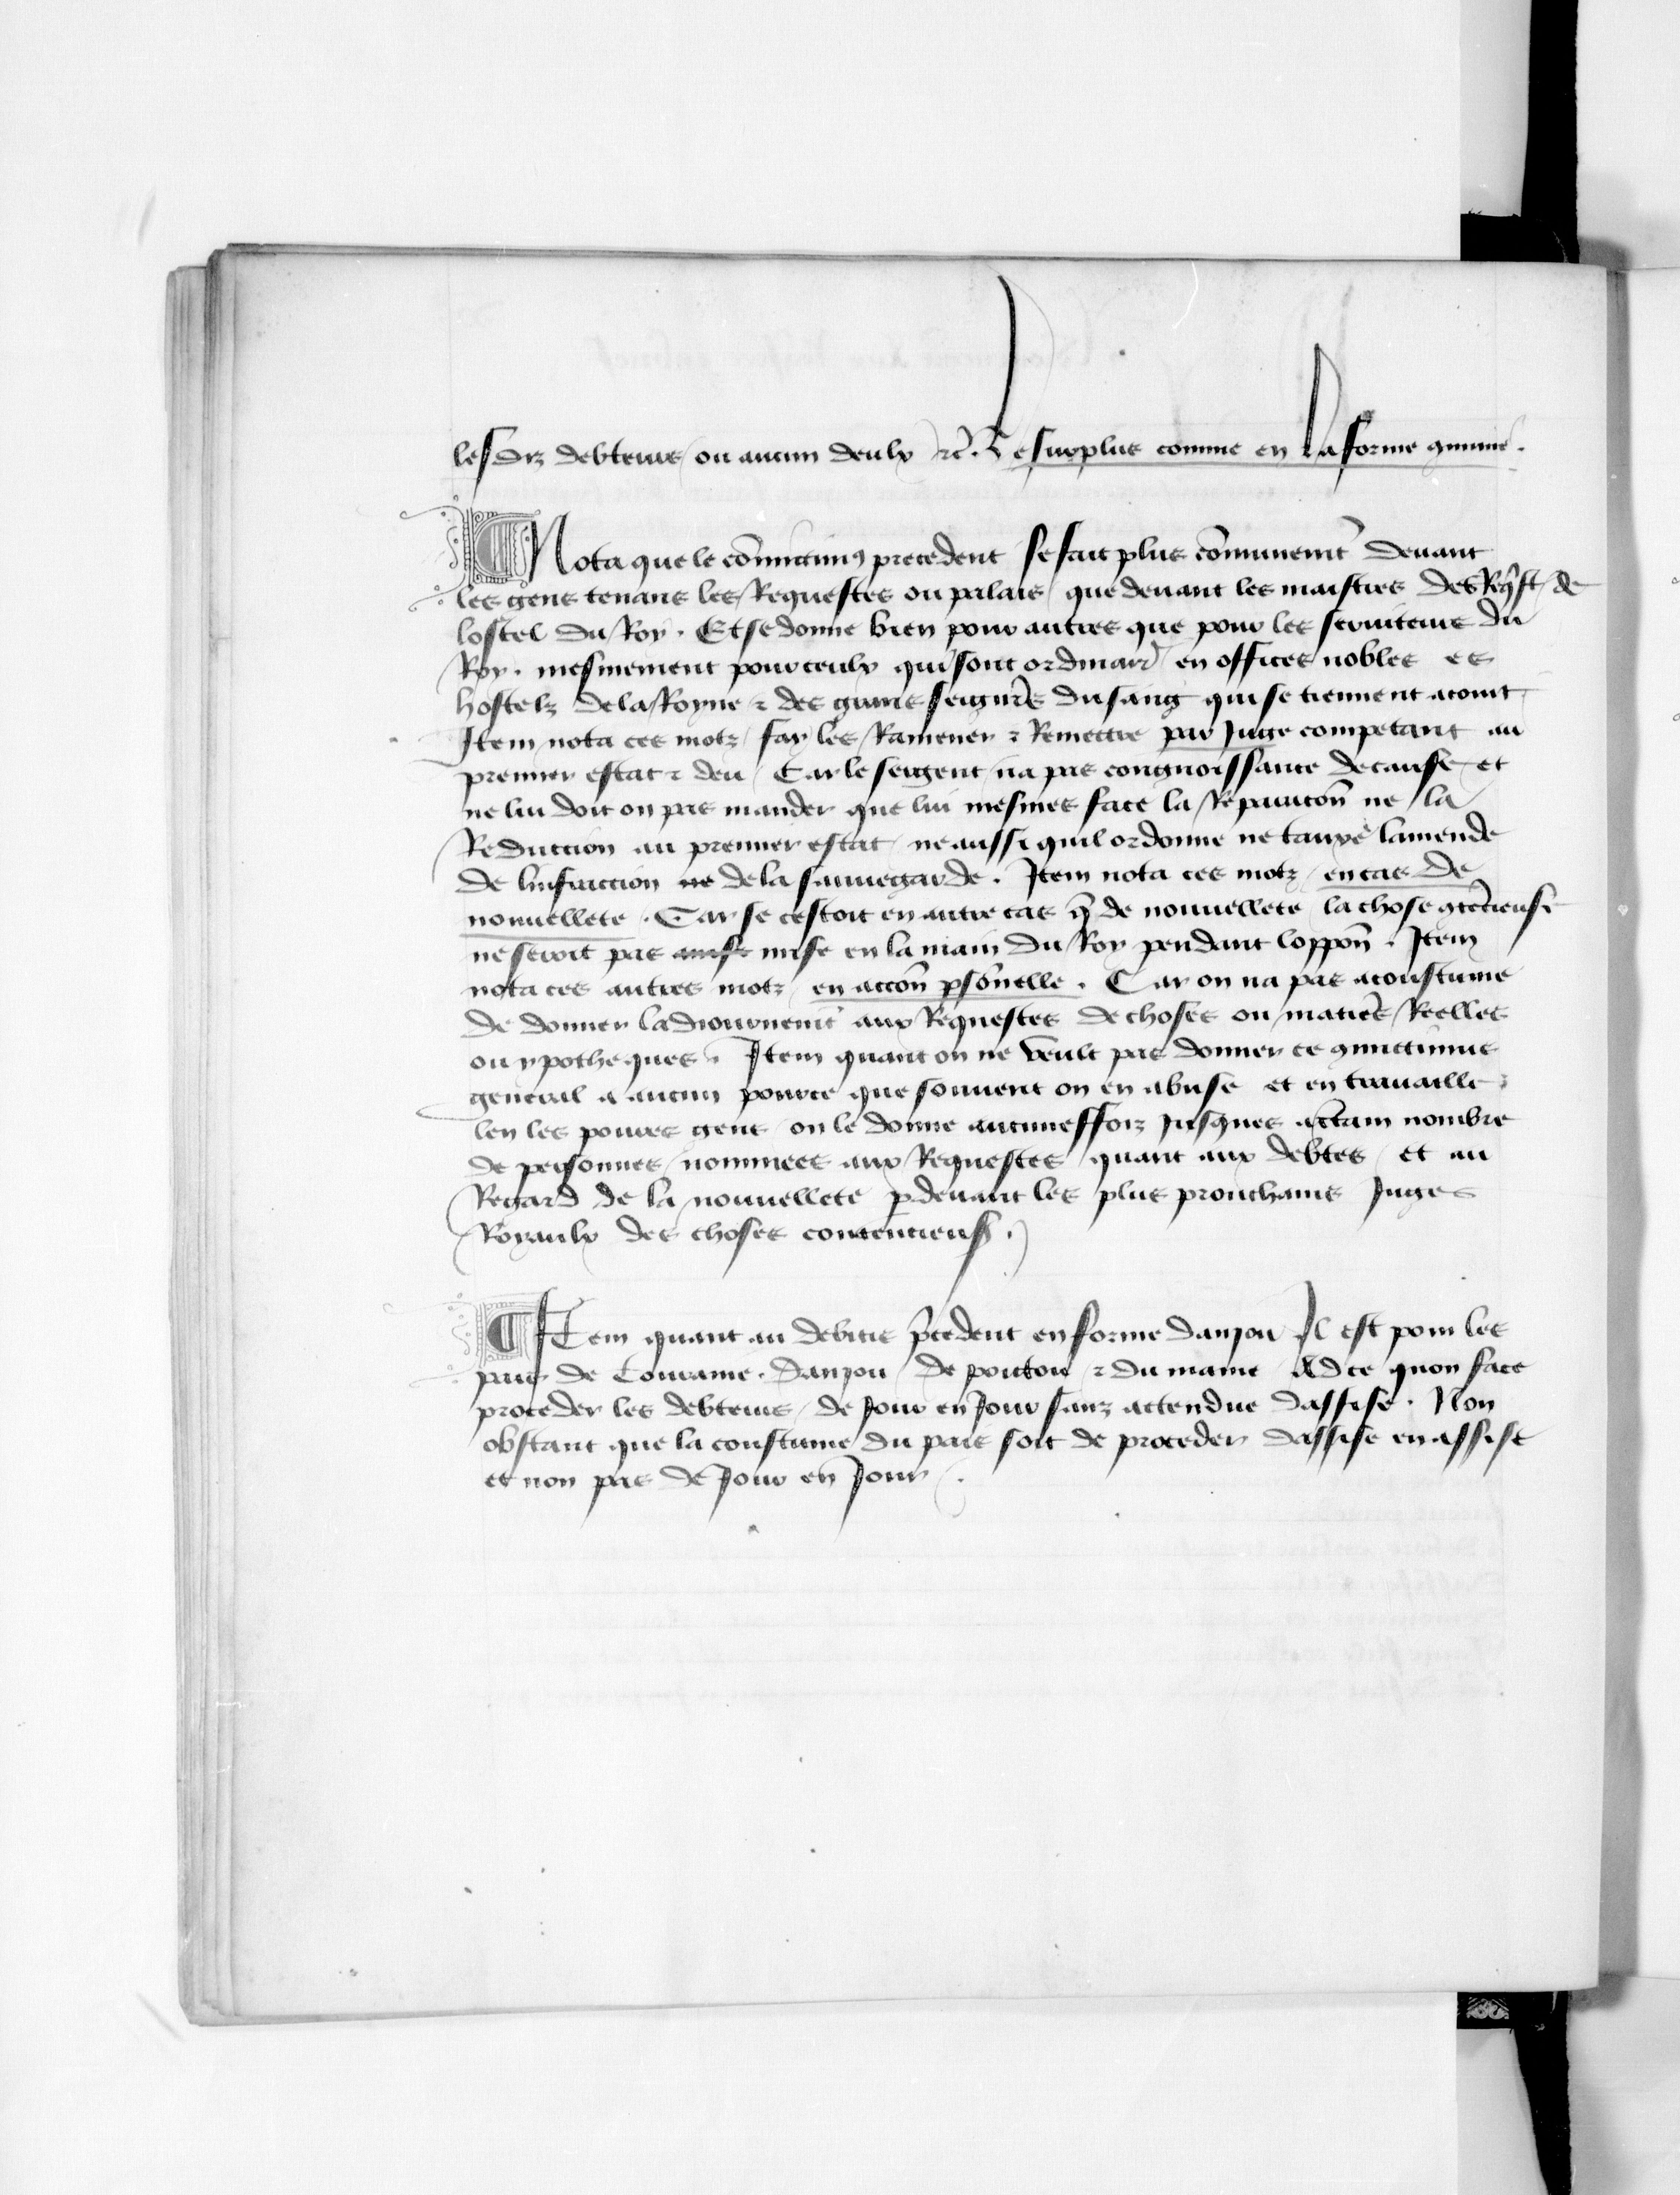 lesdiz debteurs ou aucun deulx &c. Le surplus comme en la forme commune.
Nota que le cōmictimus precedent se fait plus cōmunemt devant
les gens tenans les Requestes ou palais que devant les maistres des Reqst de
lostel du Roy. Et se donne bien pour autres que pour les serviteurs du
Roy. mesmement pour ceulx qui sont ordinair̃ en offices nobles es
hostelz de la Royne & des grans seignr̃s du sang qui se tiennent a court
Item nota ces motz fay les Ramener & Remettre par Juge competant au
premier estat & deu Car le sergent na pas congnoissance de cause et
ne lui doit on pas mander que lui mesmes face la Reparacōn ne la
Reduction au premier estat ne aussi quil ordonne ne tauxe lamende
de linfraction ne de la sauvegarde. Item nota ces motz en cas de
nouvellete. Car se cestoit en autre cas q̃ de nouvellete la chose 9tēcieuse
ne seroit pas mise en la main du Roy pendant loppōn. Item
nota ces autres motz en accōn psōnelle. Car on na pas acoustume
de donner ladiournemt aux Requestes de choses ou matier̃s Reelles
ou ypotheques. Item quant on ne veult pas donner ce 9mictimus
general a aucun pource que souvent on en abuse et en travaille
len les povres gens on le donne aucuneffoiz jusques a c̃tain nombre
de personnes nommees aux Requestes quant aux debtes et au
Regard de la nouvellete pdevant les plus prouchains Juges
Royaulx des choses contencieus̃.
Item quant au debitis p̃cedent en forme danjou Il est pour les
pais de Touraine. Danjou de poictou & du maine Ad ce quon face
proceder les debteurs de Jour en Jour sanz attendue dassise. Non
obstant que la coustume du pais soit de proceder dassise en assise
et non pas de Jour en Jour.